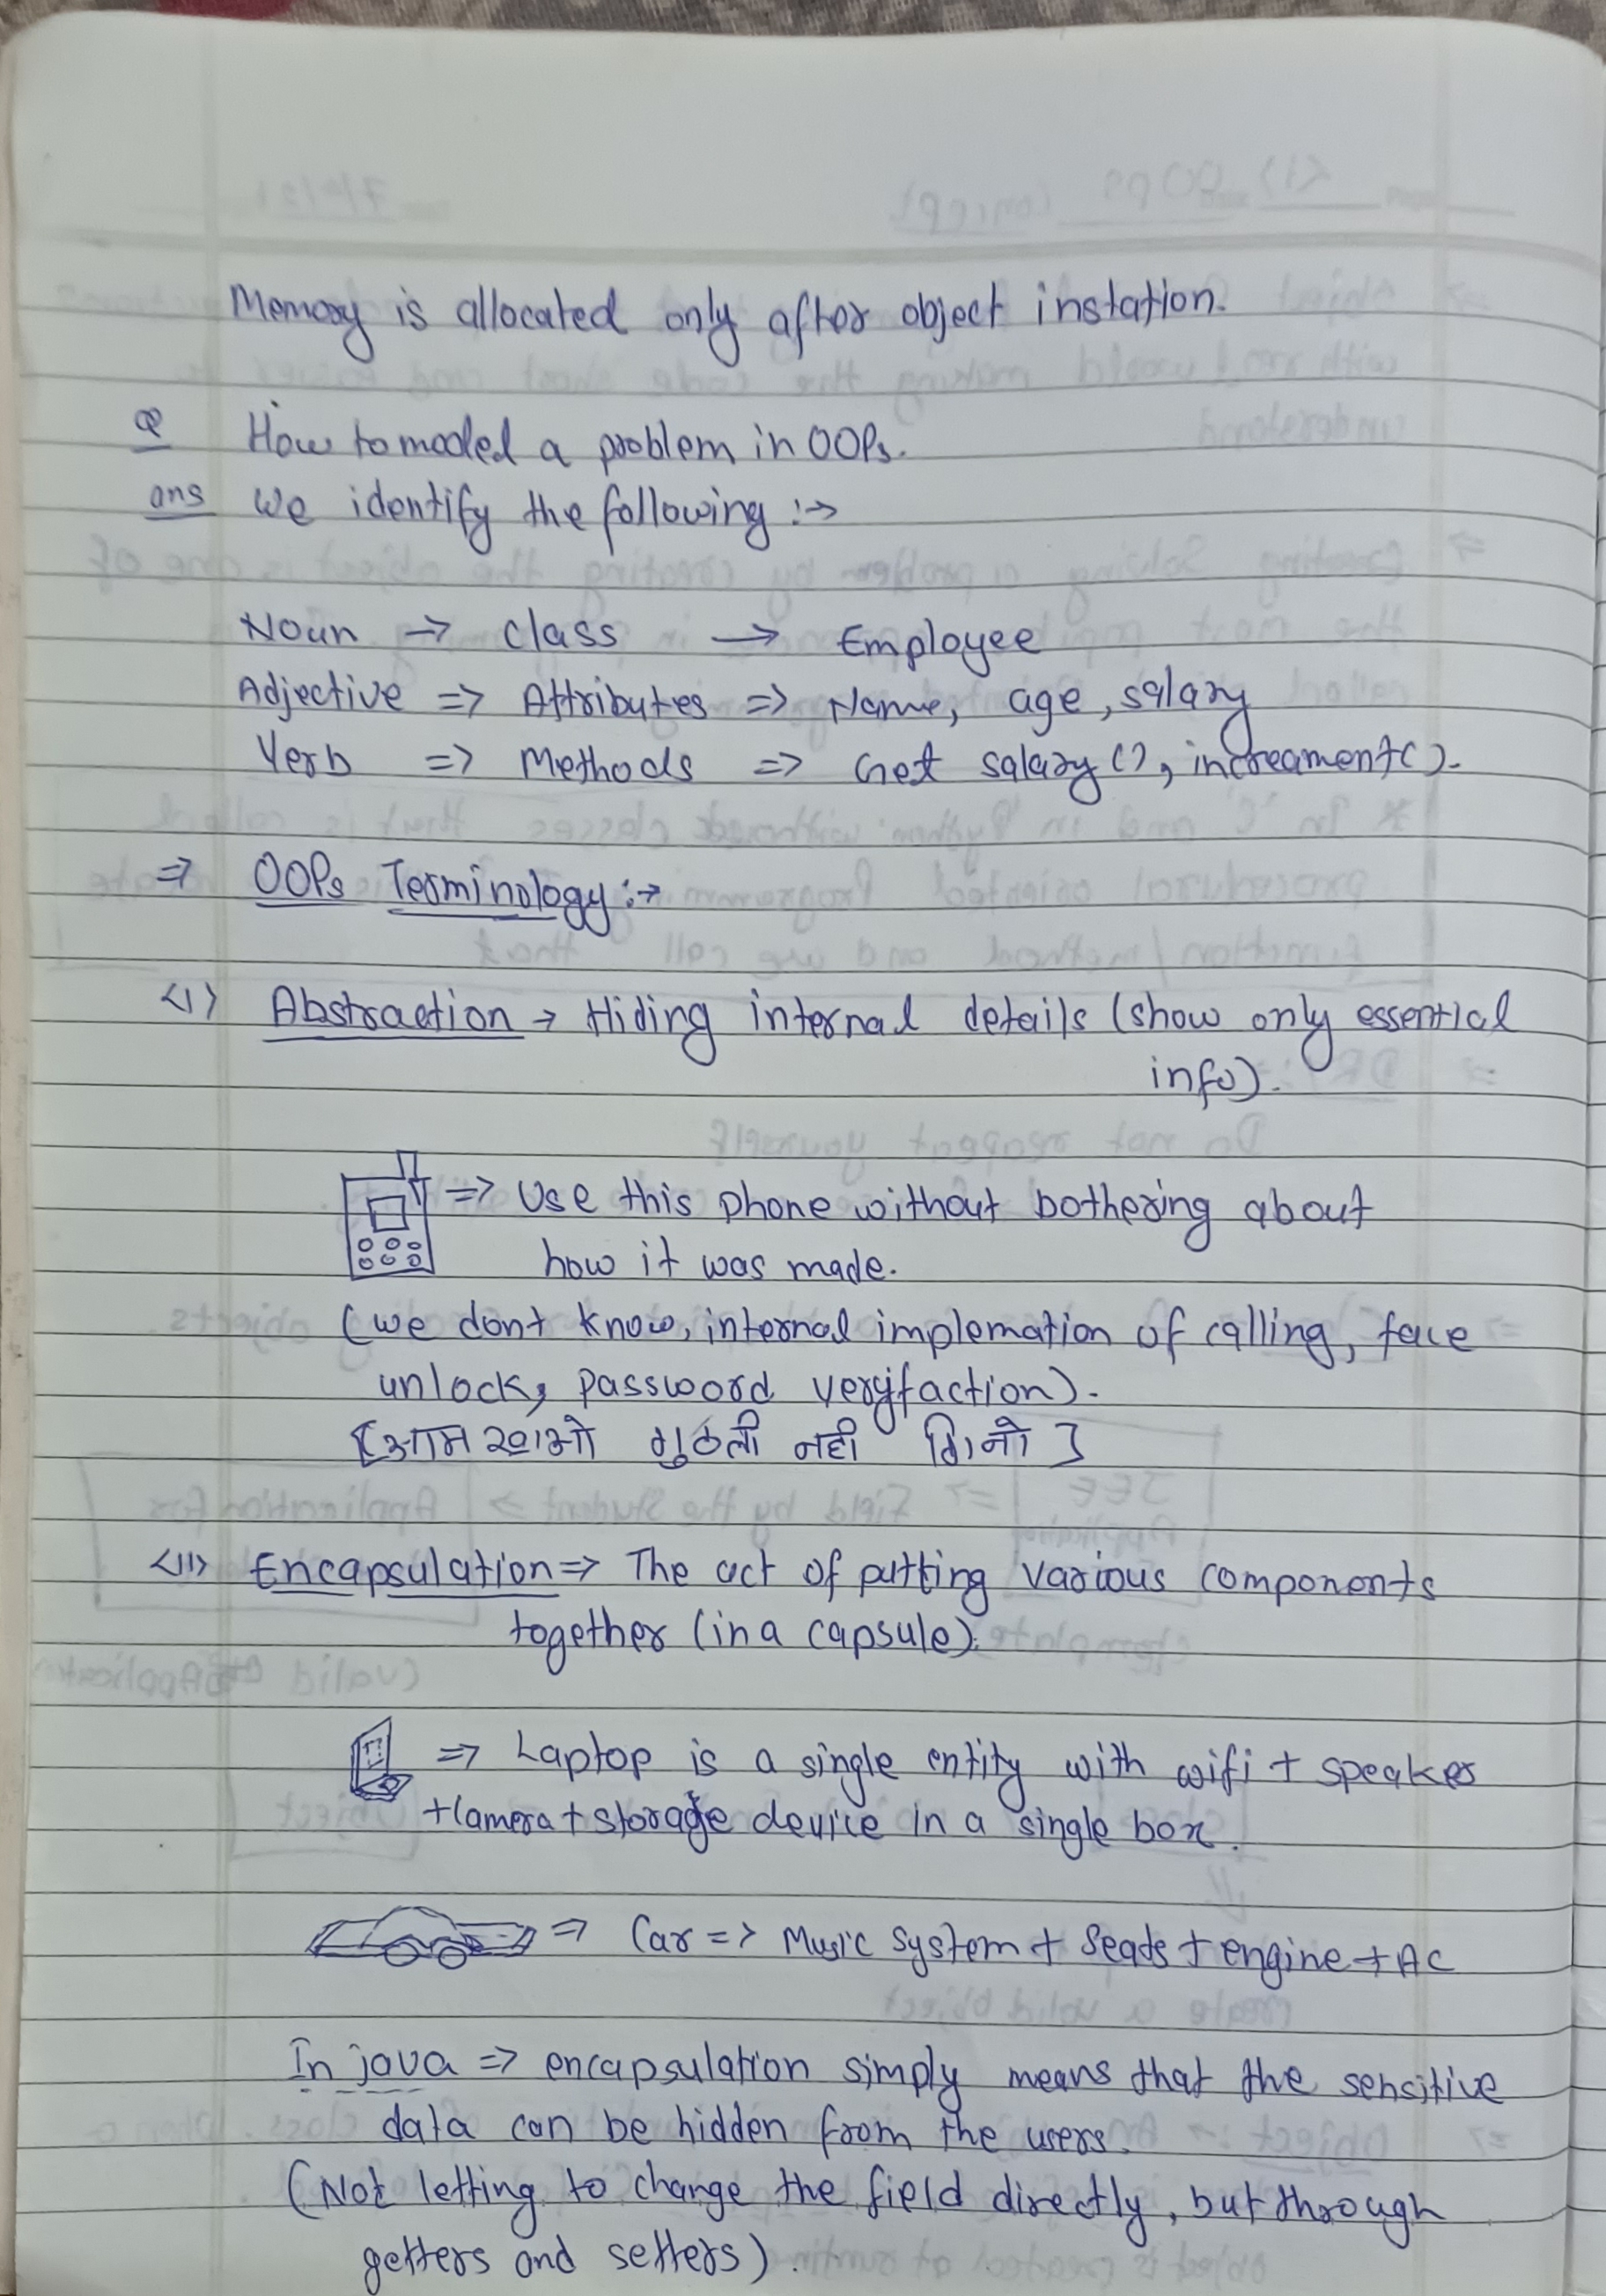 Memory is allocated only after object instation.
Q How to model a problem in OOPs.
ans We identify the following :→
Noun → class → Employee
Adjective => Attributes => Name, age, salary
Verb => Methods => Get salary(), increament().
=> OOPs Terminology :→
<1> Abstraction → Hiding internal details (show only essential
info).
=> Use this phone without bothering about
how it was made.
(we dont know, internal implemation of calling, face
unlock, password veryfaction).
[आम खाओ गुठली नही गिनो]
<11> Encapsulation => The act of putting various components
together (in a capsule).
=> Laptop is a single entity with wifi + speaker
+ Camera + storage device in a single box.
=> Car => Music system + Seats + engine + AC
In java => encapsulation simply means that the sensitive
data can be hidden from the users.
(Not letting to change the field directly, but through
getters and setters).